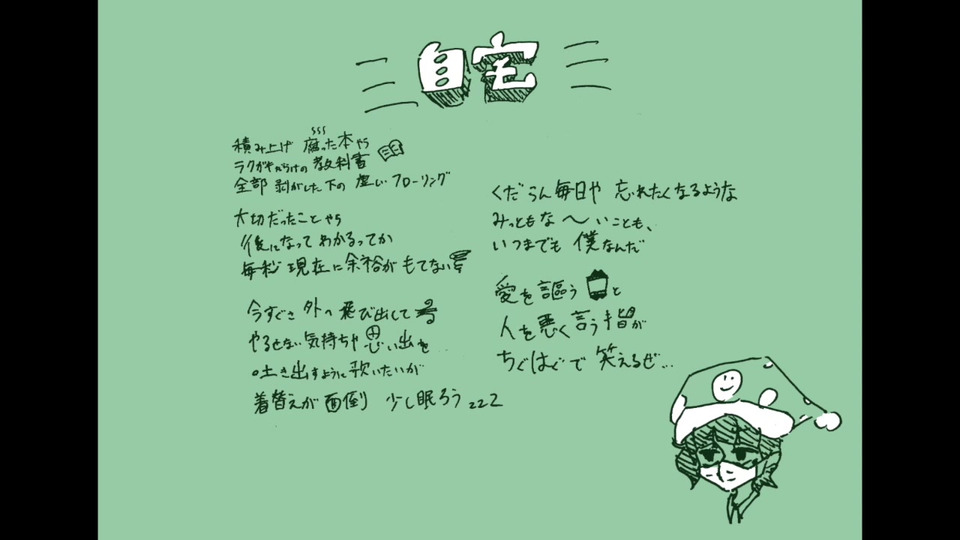 自宅
積み上げ 腐った本やら
ラクガキだらけの 教科書
全部 剥がした下の 虚しいフローリング
大切だったことやら
後になってわかるってか
毎秒 現在に余裕がもてない
今すぐさ 外へ飛び出して
やるせない気持ちや 思い出を
吐き出すように歌いたいが
着替えが面倒 少し眠ろう zzZ
くだらん毎日や 忘れたくなるような
みっともな〜いことも、
いつまでも 僕なんだ
愛を謳う口と
人を悪く言う指が
ちぐはぐで 笑えるぜ...